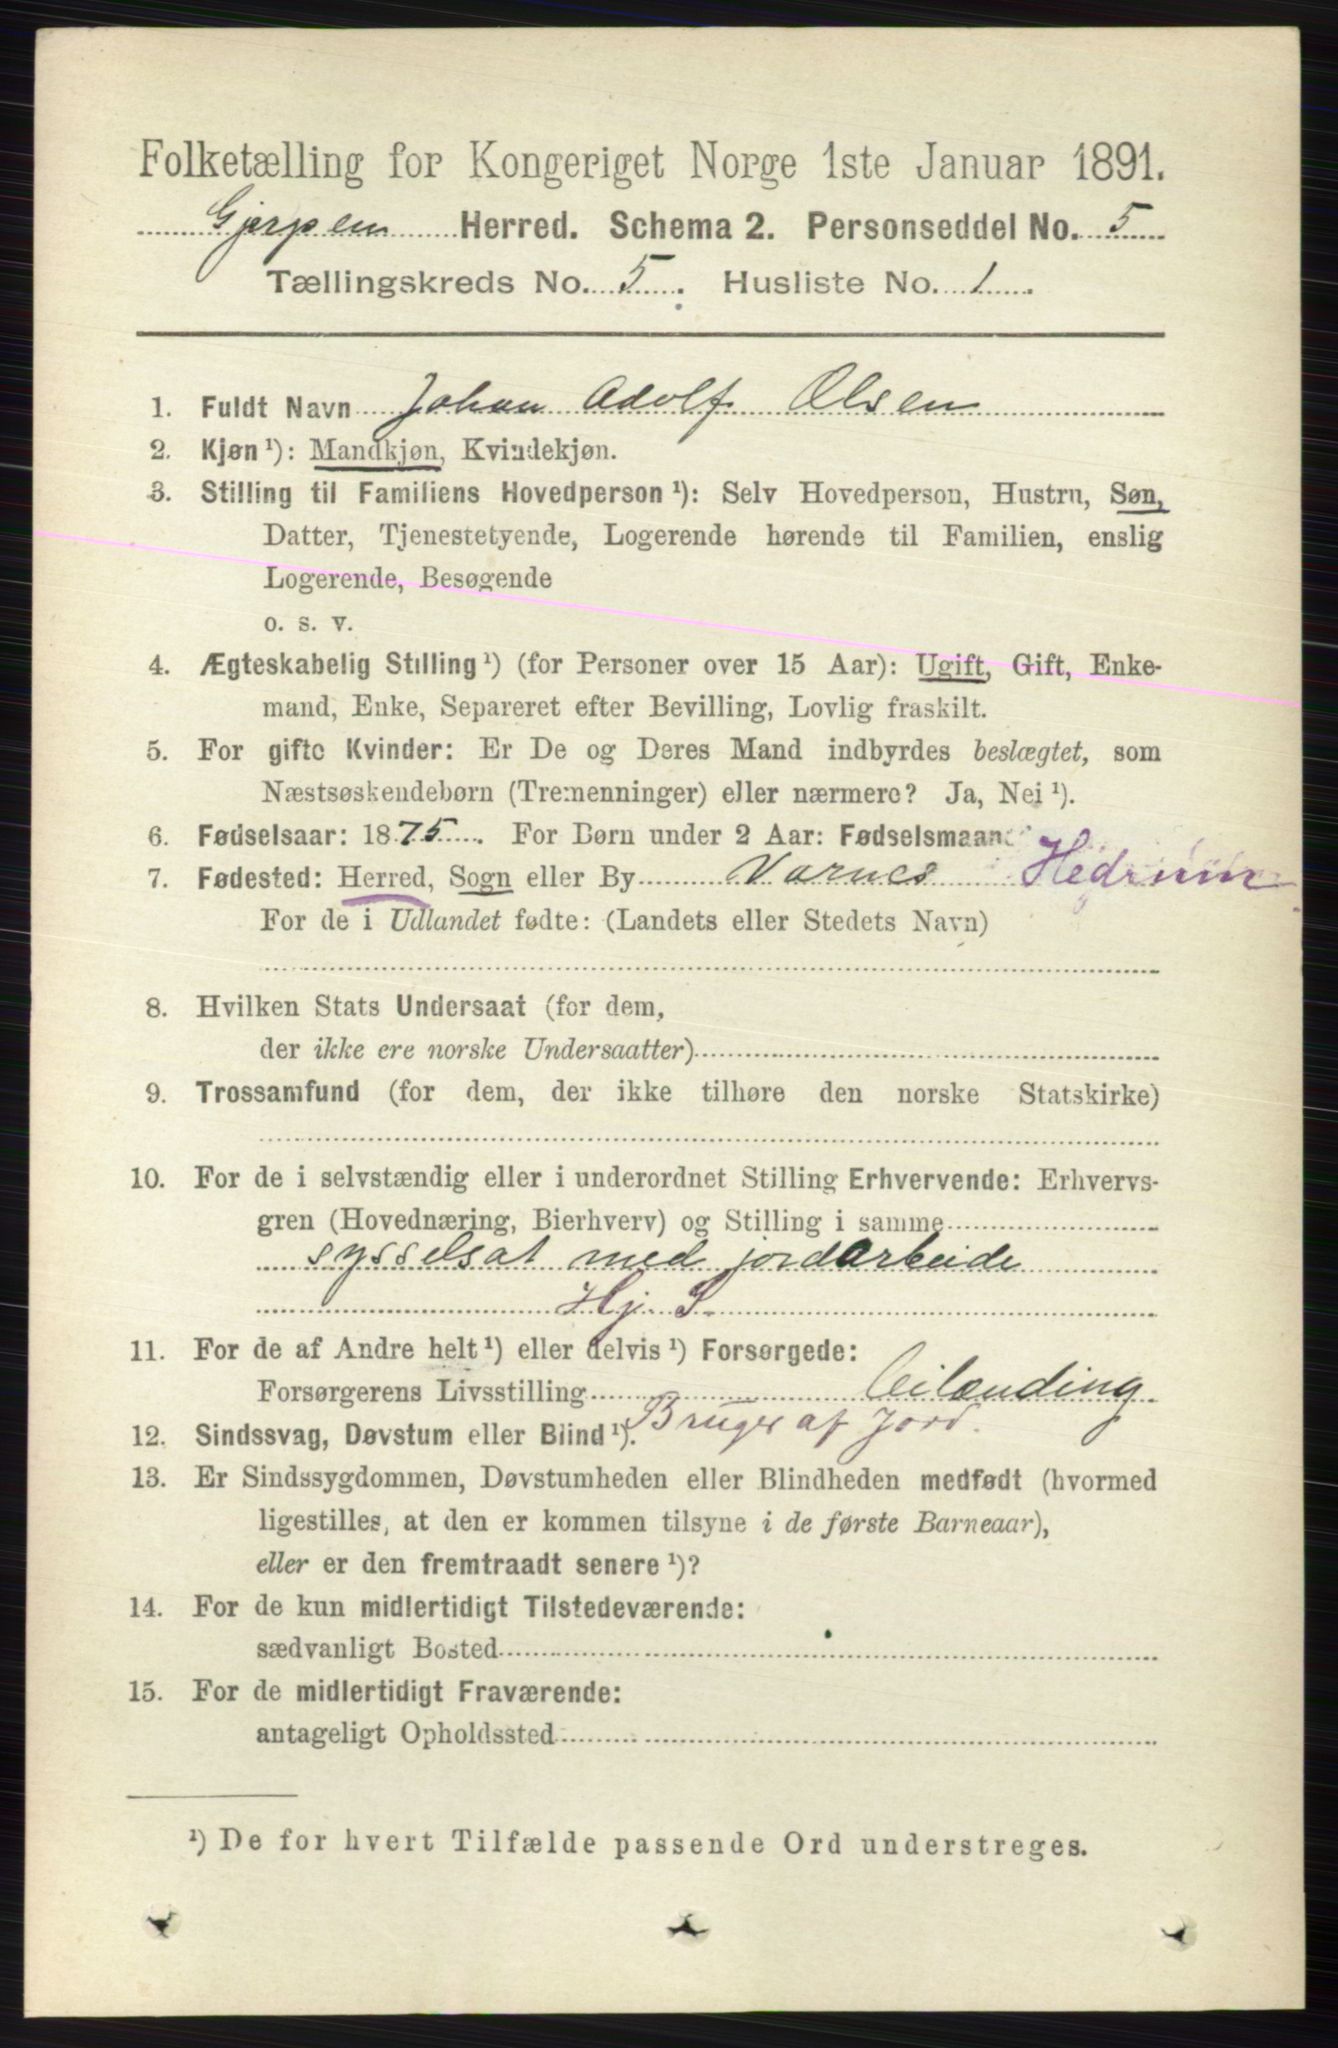 Folketælling for Kongeriget Norge 1ste Januar 1891.
Gjerpen Herred. Schema 2. Personseddel No. 5
Tællingskreds No. 5. Husliste No. 1.
1. Fuldt Navn Johan Adolf Olsen
2. Kjøn ¹): Mandkjøn, Kvindekjøn.
3. Stilling til Familiens Hovedperson ¹): Selv Hovedperson, Hustru, Søn,
Datter, Tjenestetyende, Logerende hørende til Familien, enslig
Logerende, Besøgende
o. s. v.
4. Ægteskabelig Stilling ¹) (for Personer over 15 Aar): Ugift, Gift, Enke-
mand, Enke, Separeret efter Bevilling, Lovlig fraskilt.
5. For gifte Kvinder: Er De og Deres Mand indbyrdes beslægtet, som
Næstsøskendebørn (Tremenninger) eller nærmere? Ja, Nei ¹).
6. Fødselsaar: 1875. For Børn under 2 Aar: Fødselsmaaned
7. Fødested: Herred, Sogn eller By Varnes Hedrum
For de i Udlandet fødte: (Landets eller Stedets Navn)
8. Hvilken Stats Undersaat (for dem,
der ikke ere norske Undersaatter)
9. Trossamfund (for dem, der ikke tilhøre den norske Statskirke)
10. For de i selvstændig eller i underordnet Stilling Erhvervende: Erhvervs-
gren (Hovednæring, Bierhverv) og Stilling i samme
sysselsat med jordarbeide
Hj. S.
11. For de af Andre helt ¹) eller delvis ¹) Forsørgede:
Forsørgerens Livsstilling Leilænding
Bruger af Jord.
12. Sindssvag, Døvstum eller Blind ¹).
13. Er Sindssygdommen, Døvstumheden eller Blindheden medfødt (hvormed
ligestilles, at den er kommen tilsyne i de første Barneaar),
eller er den fremtraadt senere ¹)?
14. For de kun midlertidigt Tilstedeværende:
sædvanligt Bosted
15. For de midlertidigt Fraværende:
antageligt Opholdssted
¹) De for hvert Tilfælde passende Ord understreges.